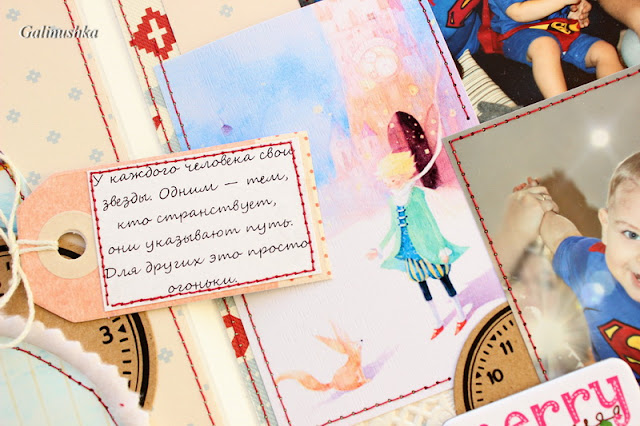 Galinushka
У каждого человека свои
звезды. Одним — тем,
кто странствует,
они указывают путь.
Для других это просто
огоньки.
3
11
10
erry